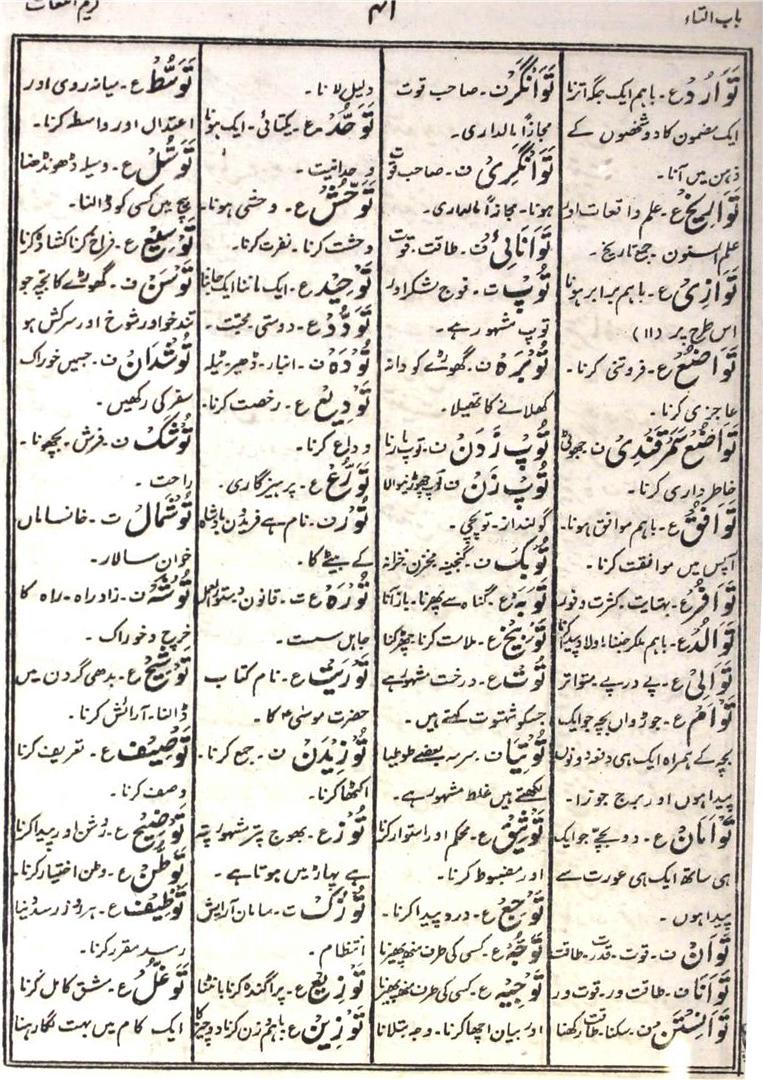 باب التاء
۴۱
کریم اللغات
تَوَارُدْ ع۔ باہم ایک جگہ اترنا
ایک مضمون کا دو شخصوں کے
ذہن میں آنا۔
تَوَارِیْخْ ع۔ علم واقعات اور
علم السنون۔ جمع تاریخ۔
تَوَازِیْ ع۔ باہم برابر ہونا
اس طرح پر (۱۱)
تَوَاضُعْ ع۔ فروتنی کرنا۔
عاجزی کرنا۔
تَوَاضُعِ سَمَرْقَنْدِیْ ف۔ جھوٹی
خاطر داری کرنا۔
تَوَافُقْ ع۔ باہم موافق ہونا۔
آپس میں موافقت کرنا۔
تَوَافُرْ ع۔ بہتایت۔ کثرت وفور
تَوَالُدْ ع۔ باہم ملکر جننا۔ اولاد پیدا کرنا
تَوَالِیْ ع۔ پے درپے۔ متواتر
تَوْاَمْ ع۔ جوڑواں بچہ جو ایک
بچہ کے ہمراہ ایک ہی دفعہ دونوں
پیدا ہوں اور برج جوزا۔
تَوْاَمَانْ ع۔ دو بچے جو ایک
ہی ساتھ ایک ہی عورت سے
پیدا ہوں۔
تَوَانْ ف۔ قوت۔ قدرت۔ طاقت
تَوَانَا ف۔ طاقت ور۔ قوت ور
تَوَانِسْتَنْ ف۔ سکنا۔ طاقت رکھنا
تَوَانْگَرْ ف۔ صاحب قوت
مجازاً مالداری۔
تَوَانْگَرِیْ ف۔ صاحب قوت
ہونا۔ مجازاً مالداری۔
تَوَانَائِیْ ف۔ طاقت۔ قوت
تُوْپْ ت۔ فوج شکر اور
توپ مشہور ہے۔
تُوْبَرَہْ ف۔ گھوڑے کو دانہ
کھلانے کا تھیلا۔
تُوْپْ زَدَنْ ف۔ توپ مارنا
تُوْپْ زَنْ ف۔ توپ چھوڑنیوالا
گولنداز۔ توپچی۔
تُوْبَکْ ف۔ گنجینہ مخزن خزانہ
تَوْبَہْ ع۔ گناہ سے پھرنا۔ باز آنا
تَوْبِیْخْ ع۔ ملامت کرنا جھڑکنا
تُوْتْ ع۔ درخت مشہور ہے
جسکو شہتوت کہتے ہیں۔
تُوْتِیَا ف۔ سرمہ بعضے طوطیا
لکھتے ہیں غلط مشہور ہے۔
تَوْثِیْقْ ع۔ محکم اور استوار کرنا
اور مضبوط کرنا۔
تَوَجُّعْ ع۔ درد پیدا کرنا۔
تَوَجُّہْ ع۔ کسی کی طرف منھ پھیرنا
تَوْجِیْہْ ع۔ کسی کی طرف منھ پھیرنا
اور بیان اچھا کرنا۔ وجہ بتلانا
دلیل لانا۔
تَوَحُّدْ ع۔ یکتائی۔ ایک ہونا
وحدانیت۔
تَوَحُّشْ ع۔ وحشی ہونا۔
وحشت کرنا۔ نفرت کرنا۔
تَوْحِیْدْ ع۔ ایک ماننا ایک جاننا
تَوَدُّدْ ع۔ دوستی۔ محبت۔
تُوْدَہْ ف۔ انبار۔ ڈھیر۔ ٹیلہ
تَوْدِیْعْ ع۔ رخصت کرنا۔
وداع کرنا۔
تَوَرُّعْ ع۔ پرہیزگاری۔
تُوْرْ ف۔ نام ہے فریدوں بادشاہ
کے بیٹے کا۔
تُوْرَہْ ع ت۔ قانون دستور العمل
جاہل سست۔
تَوْرِیْتْ ع۔ نام کتاب
حضرت موسیٰ ؑ کا۔
تُوْزِیْدَنْ ف۔ جمع کرنا۔
اکٹھا کرنا۔
تُوْزْ ع۔ بھوج پتر مشہور پتہ
ہے پہاڑ میں ہوتا ہے۔
تُوْزُکْ ت۔ سامان آرایش
انتظام۔
تَوْزِیْعْ ع۔ پراگندہ کرنا بانٹنا
تَوْزِیْنْ ع۔ باہم وزن کرنا دو چیز کا
تَوَسُّطْ ع۔ میانہ روی اور
اعتدال اور واسطہ کرنا۔
تَوَسُّلْ ع۔ وسیلہ ڈھونڈھنا
بیچ میں کسی کو ڈالنا۔
تَوْسِیْعْ ع۔ فراخ کرنا کشادہ کرنا
تَوْسَنْ ف۔ گھوڑے کا بچہ جو
تند خو اور شوخ اور سرکش ہو
تُوْشَدَانْ ف۔ جسمیں خوراک
سفر کی رکھیں۔
تُوْشَکْ ف۔ فرش۔ بچھونا۔
راحت۔
تُوْشْمَالْ ت۔ خانساماں
خوان سالار۔
تُوْشَہْ ف۔ زاد راہ۔ راہ کا
خرچ و خوراک۔
تَوْشِیْحْ ع۔ بدھی گردن میں
ڈالنا۔ آرائش کرنا۔
تَوْصِیْفْ ع۔ تعریف کرنا
وصف کرنا۔
تَوْضِیْحْ ع۔ روشن اور پیدا کرنا
تَوَطُّنْ ع۔ وطن اختیار کرنا۔
تَوْظِیْفْ ع۔ ہر روز رسد دینا
رسد مقرر کرنا۔
تَوَغُّلْ ع۔ مشق کامل کرنا
ایک کام میں بہت لگا رہنا